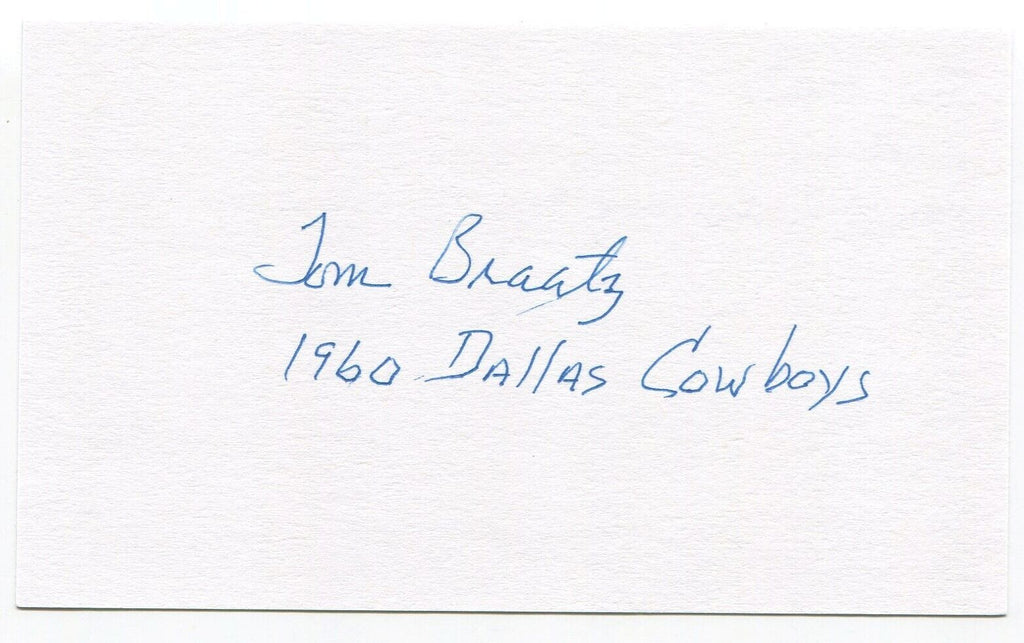 Tom Braatz
1960 Dallas Cowboys